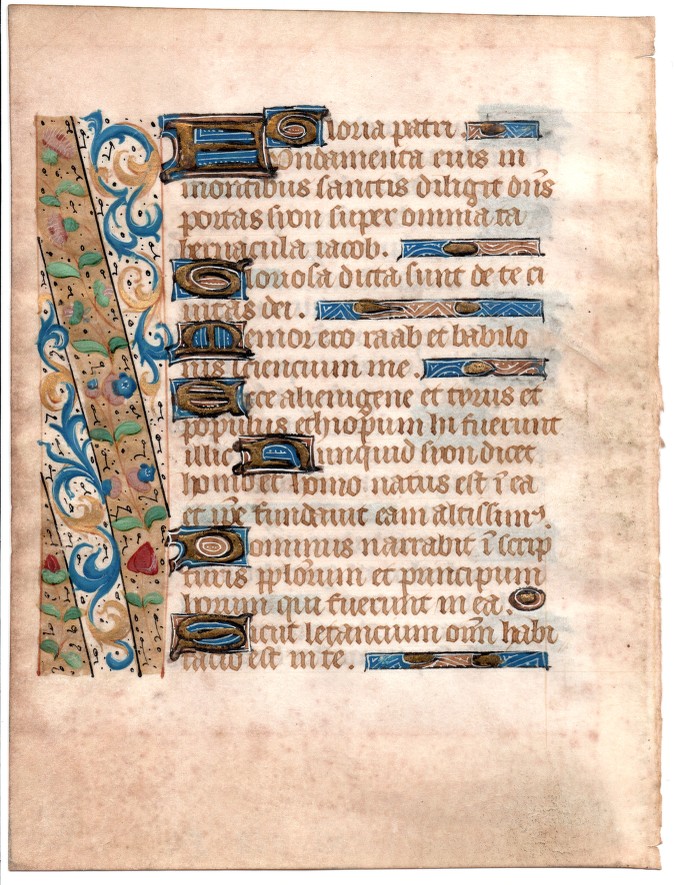 Gloria patri.
Fundamenta eius in
montibus sanctis diligit dn̄s
portas syon super omnia ta
bernacula iacob.
Gloriosa dicta sunt de te ci
uitas dei.
Memor ero raab et babilo
nis sciencium me.
Ecce alienigene et tyrus et
populus ethiopum hi fuerunt
illic Nunquid syon dicet
homo et homo natus est ī ea
et ip̄e fundauit eam altissim⁹.
Dominus narrabit ī scrip
turis pplōrum et principum
horum qui fuerunt in ea.
Sicut letancium om̄ habi
tatio est in te.